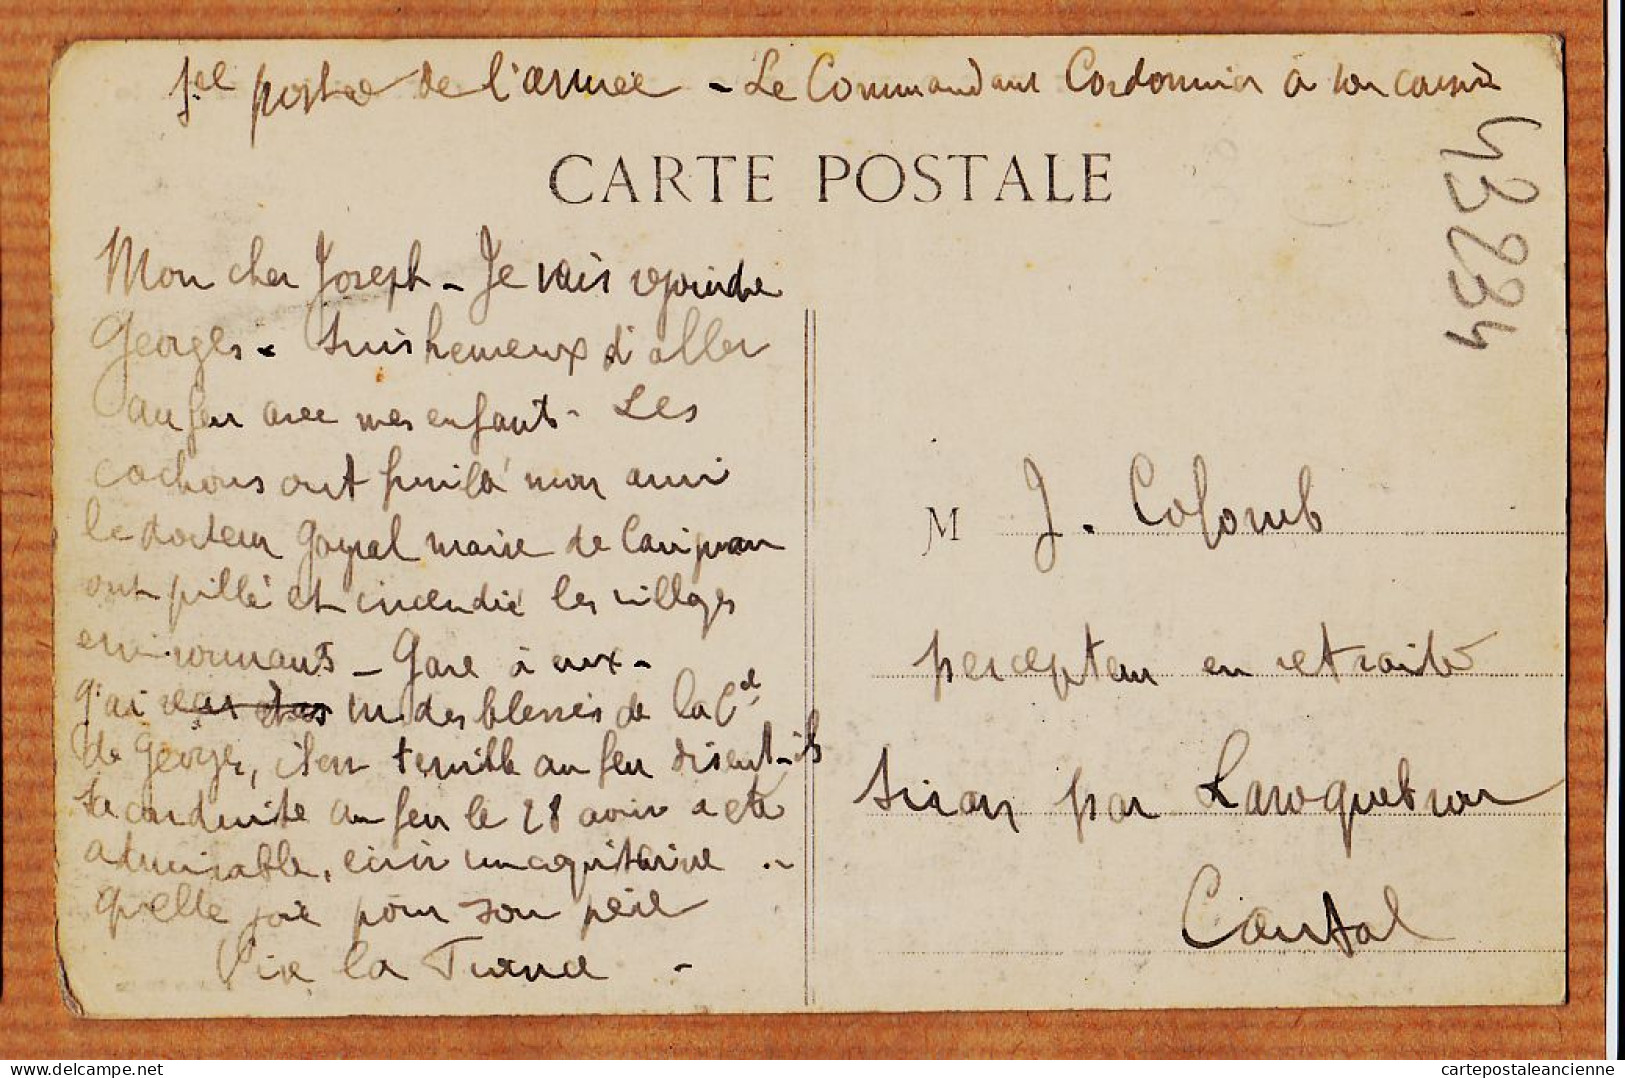 poste de l'armée - Le Commandant Cordonnier à son cousin
CARTE POSTALE
43234
Mon cher Joseph - Je vais rejoindre
Georges - suis heureux d'aller
au feu avec mes enfants - Les
cochons ont fusillé mon ami
le docteur Gayral maire de Carignan
ont pillé et incendié les villages
environnants - Gare à eux -
J'ai vu des blessés de la Cie
de Georges, il est terrible au feu disent-ils
sa conduite au feu le 28 août a été
admirable, écrit un capitaine -
quelle joie pour son père
Vive la France -
M J. Colomb
percepteur en retraite
Siran par Laroquebrou
Cantal
cartepostaleancienne.com